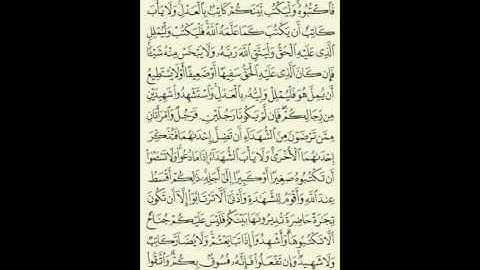 فَاكْتُبُوهُ وَلْيَكْتُب بَّيْنَكُمْ كَاتِبٌ بِالْعَدْلِ وَلَا يَأْبَ
كَاتِبٌ أَن يَكْتُبَ كَمَا عَلَّمَهُ اللَّهُ فَلْيَكْتُبْ وَلْيُمْلِلِ
الَّذِي عَلَيْهِ الْحَقُّ وَلْيَتَّقِ اللَّهَ رَبَّهُ وَلَا يَبْخَسْ مِنْهُ شَيْئًا
فَإِن كَانَ الَّذِي عَلَيْهِ الْحَقُّ سَفِيهًا أَوْ ضَعِيفًا أَوْ لَا يَسْتَطِيعُ
أَن يُمِلَّ هُوَ فَلْيُمْلِلْ وَلِيُّهُ بِالْعَدْلِ وَاسْتَشْهِدُوا شَهِيدَيْنِ
مِن رِّجَالِكُمْ فَإِن لَّمْ يَكُونَا رَجُلَيْنِ فَرَجُلٌ وَامْرَأَتَانِ
مِمَّن تَرْضَوْنَ مِنَ الشُّهَدَاءِ أَن تَضِلَّ إِحْدَاهُمَا فَتُذَكِّرَ
إِحْدَاهُمَا الْأُخْرَى وَلَا يَأْبَ الشُّهَدَاءُ إِذَا مَا دُعُوا وَلَا تَسْأَمُوا
أَن تَكْتُبُوهُ صَغِيرًا أَوْ كَبِيرًا إِلَى أَجَلِهِ ذَلِكُمْ أَقْسَطُ
عِندَ اللَّهِ وَأَقْوَمُ لِلشَّهَادَةِ وَأَدْنَى أَلَّا تَرْتَابُوا إِلَّا أَن تَكُونَ
تِجَارَةً حَاضِرَةً تُدِيرُونَهَا بَيْنَكُمْ فَلَيْسَ عَلَيْكُمْ جُنَاحٌ
أَلَّا تَكْتُبُوهَا وَأَشْهِدُوا إِذَا تَبَايَعْتُمْ وَلَا يُضَارَّ كَاتِبٌ
وَلَا شَهِيدٌ وَإِن تَفْعَلُوا فَإِنَّهُ فُسُوقٌ بِكُمْ وَاتَّقُوا